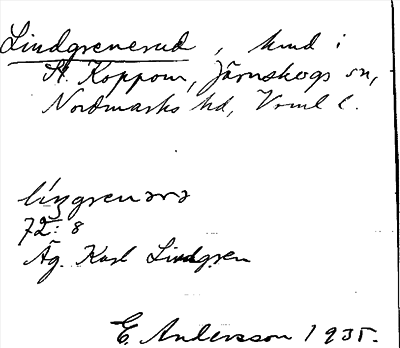 Lindgrenerud, hmd i
St. Koppom, Järnskogs sn,
Nordmarks hd, Vrml l.
líŋgrenərə
72: 8
Äg. Karl Lindgren
E. Andersson 1935.